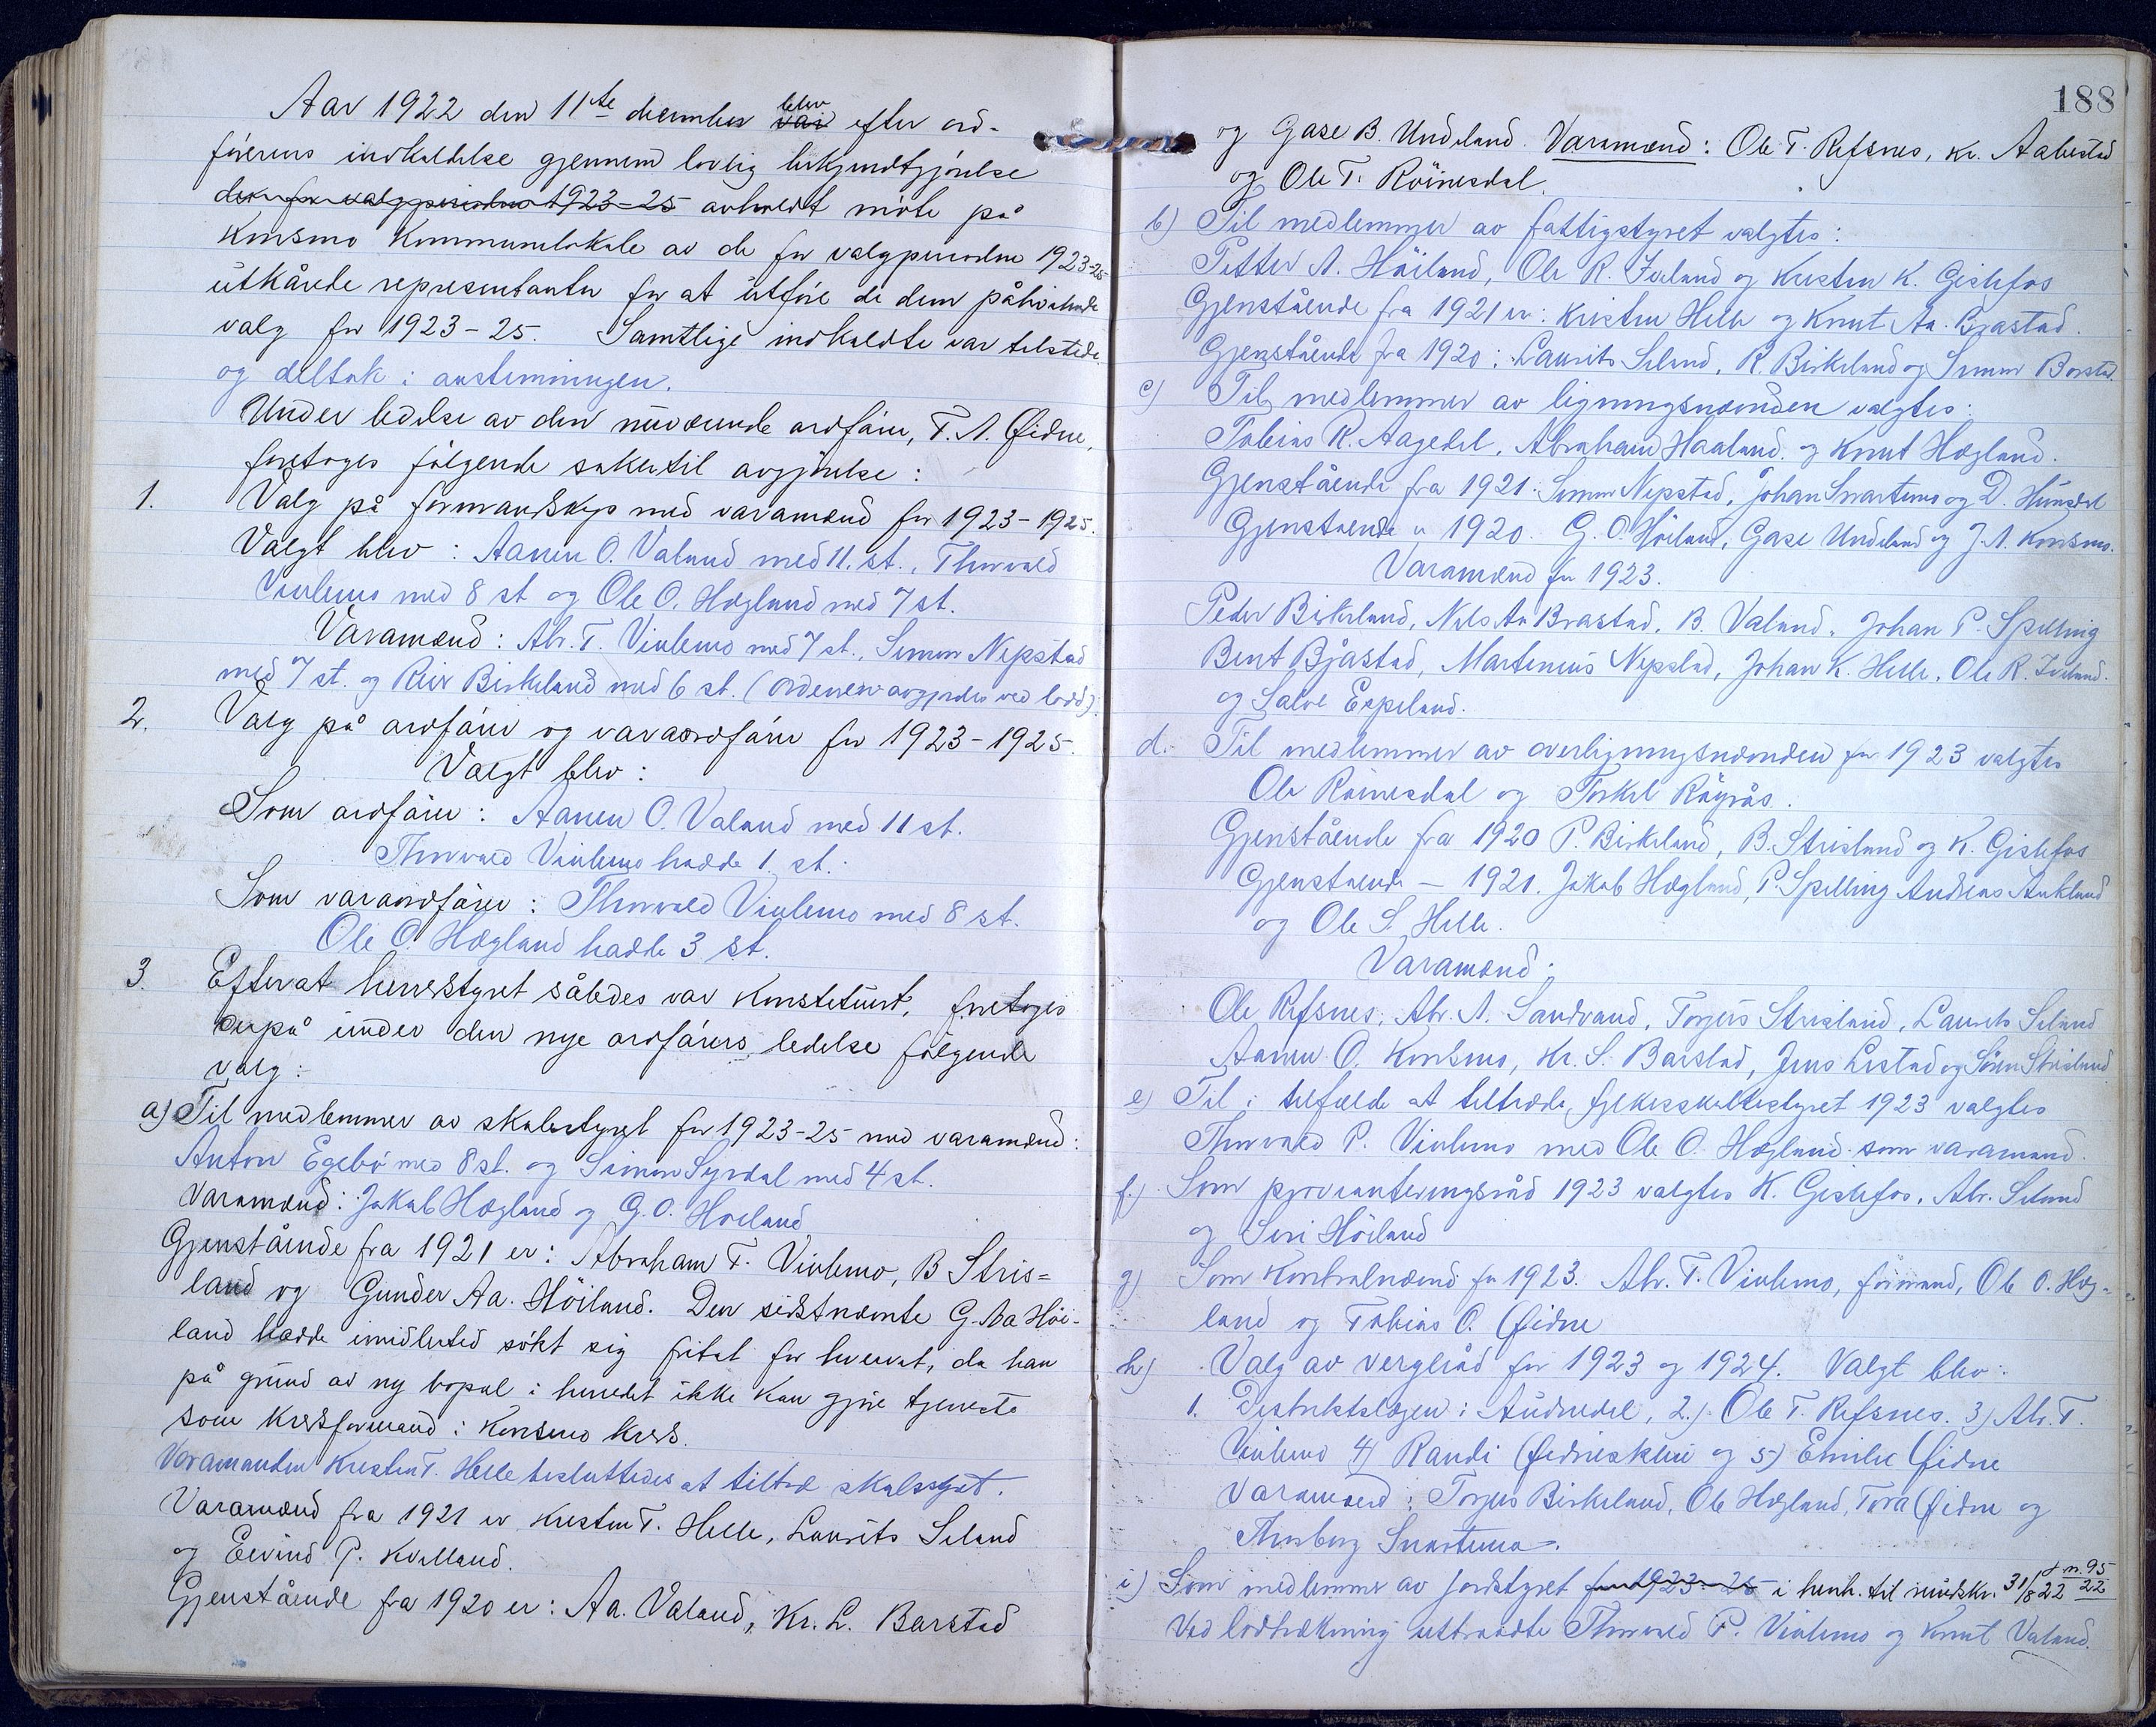 Aar 1922 den 11te december blev efter ord-
førerens indkaldelse gjennem lovlig bekjendtgjørelse
avholdt møte på
Konsmo Kommunelokale av de for valgperioden 1923-25
utkårede representanter for at utføre de dem påhvilende
valg for 1923-25. Samtlige indkaldte var tilstede
og deltok i avstemningen.
Under ledelse av den nuværende ordfører, T. A. Øidne,
foretoges følgende saker til avgjørelse:
1. Valg på formandskap med varamænd for 1923-1925.
Valgt blev: Aanen O. Valand med 11. st., Thorvald
Viulemo med 8 st og Ole O. Hægland med 7 st.
Varamænd: Abr. T. Viulemo med 7 st., Simon Nepstad
med 7 st. og Reier Birkeland med 6 st. (Ordenen avgjordes ved lodd).
2. Valg på ordfører og varaordfører for 1923-1925.
Valgt blev:
Som ordfører: Aanen O. Valand med 11 st.
Thorvald Viulemo hadde 1 st.
Som varaordfører: Thorvald Viulemo med 8 st.
Ole O. Hægland hadde 3 st.
3. Efterat herredstyret således var konstetuert, foretoges
derpå under den nye ordførers ledelse følgende
valg:
a) Til medlemmer av skolestyret for 1923-25 med varamænd:
Anton Egebø med 8 st. og Simon Syrdal med 4 st.
Varamænd: Jakob Hægland og G. O. Høiland
Gjenstående fra 1921 er: Abraham T. Viulemo, B Stris=
land og Gunder Aa. Höiland. Den sidstnævnte G. Aa Höi-
land hadde imidlertid søkt sig fritat for hvervet, da han
på grund av ny bopæl i herredet ikke kan gjøre tjeneste
som kredsformand i Konsmo kreds.
Varamanden Kristen T. Helle besluttedes at tiltræ skolestyret.
Varamænd fra 1921 er Kristen T. Helle, Laurits Seland
og Eivind P. Kvelland.
Gjenstående fra 1920 er: Aa. Valand, Kr. L. Barstad
188
og Gase B. Undeland. Varamænd: Ole T. Refsnes, Kr. Aabestad
og Ole T. Röinesdal.
b) Til medlemmer av fattigstyret valgtes:
Petter A. Höiland, Ole R. Iveland og Kristen K. Gislefos
Gjenstående fra 1921 er: Kristen Helle og Knut Aa. Bjåstad.
Gjenstående fra 1920: Laurits Seland, R. Birkeland og Simon Barstad.
c) Til medlemmer av ligningsnævnden valgtes:
Tobias K. Aagedal, Abraham Haaland og Knut Hægland.
Gjenstående fra 1921: Simon Nepstad, Johan Svartemo og D. Hunsdal
Gjenstaende fra 1920. G. O. Höiland, Gase Undeland og J. A. Konsmo.
Varamænd for 1923.
Peder Birkeland, Nils Aa Brastad, B. Valand, Johan P. Spilling
Bent Bjåstad, Martinius Nepstad, Johan K. Helle, Ole R. Iveland.
og Salve Espeland.
d. Til medlemmer av overligningsnævnden for 1923 valgtes
Ole Röinesdal og Torkel Rögrås.
Gjenstående fra 1920 P. Birkeland, B. Strisland og K. Gislefos
Gjenstaende — 1921. Jakob Hægland, P. Spilling Andreas Aukland
og Ole S. Helle.
Varamænd:
Ole Refsnes, Abr. A. Sandvand, Torjus Strisland, Laurits Seland
Aanen O. Konsmo, Kr. S. Barstad, Jens Lestad og Sören Strisland
e) Til i tilfælde at tiltræde fylkesskattestyret 1923 valgtes
Thorvald P. Viulemo med Ole O. Hægland som varamand.
f.) Som provianteringsråd 1923 valgtes K. Gislefos, Abr. Seland
og Siri Höiland
g) Som Kontrolnævnd for 1923. Abr. T. Viulemo, formand, Ole O. Hæg-
land og Tobias O. Øidne
h) Valg av vergeråd for 1923 og 1924. Valgt blev:
1. Distriktslægen i Audnedal, 2.) Ole T. Refsnes. 3) Abr. T.
Viulemo 4) Randi Øidneskleiv og 5) Emilie Øidne
Varamænd: Torjus Birkeland, Ole Hægland, Tora Øidne og
Thorborg Svartemo.
i) Som medlemmer av jordstyret for 1923-25 i henh. til rundskr. 31/8 22 J. n. 95/22
Ved lodtrækning uttraadte Thorvald P. Viulemo og Knut Valand.